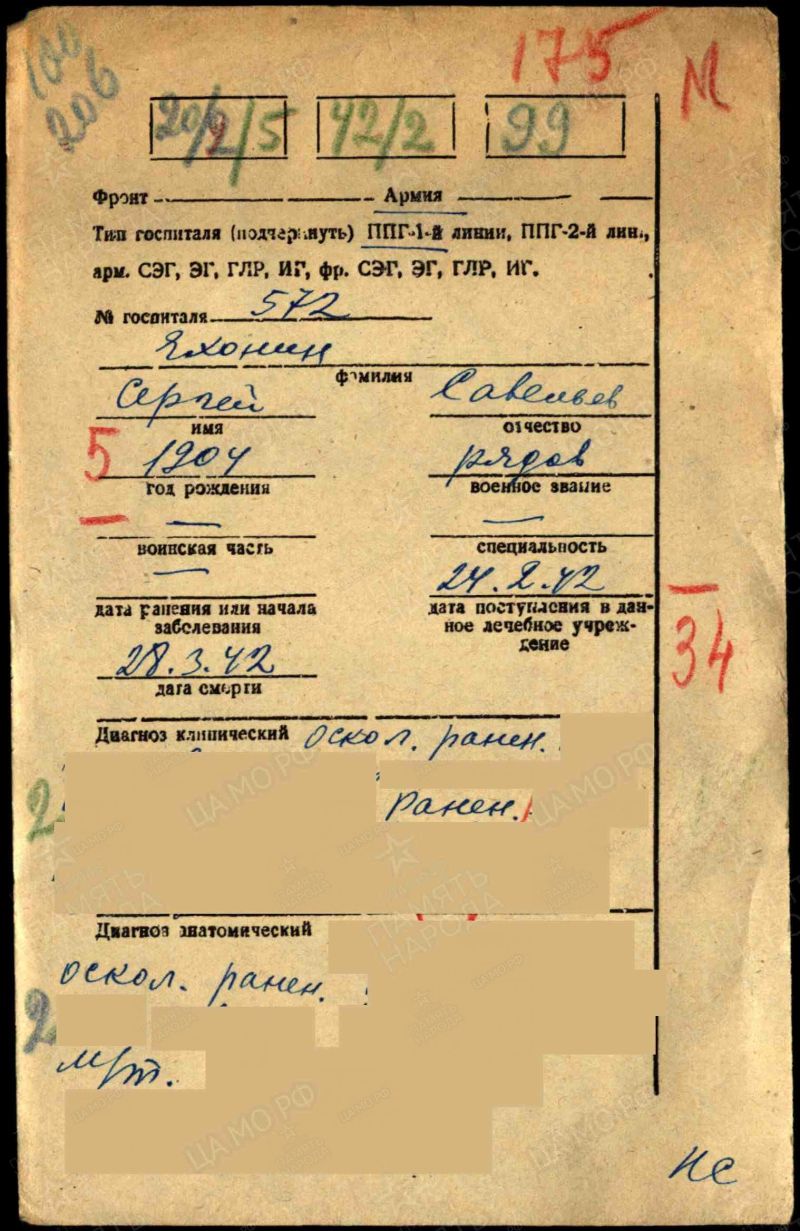 175 М
100
206
20/2/5 42/2 99
Фронт Армия
Тип госпиталя (подчеркнуть) ППГ-1-й линии, ППГ-2-й лин.,
арм. СЭГ, ЭГ, ГЛР, ИГ, фр. СЭГ, ЭГ, ГЛР, ИГ.
№ госпиталя 572
Яхонин
фамилия
Сергей Савельев
имя отчество
5 1904 рядов
год рождения военное звание
— —
воинская часть специальность
— 24.2.42
дата ранения или начала дата поступления в дан-
заболевания ное лечебное учреж-
дение
34
28.3.42
дата смерти
Диагноз клинический оскол. ранен.
2
ранен.
Диагноз анатомический
оскол. ранен.
2
м/т.
нс
ЦАМО РФ
ПАМЯТЬ
НАРОДА